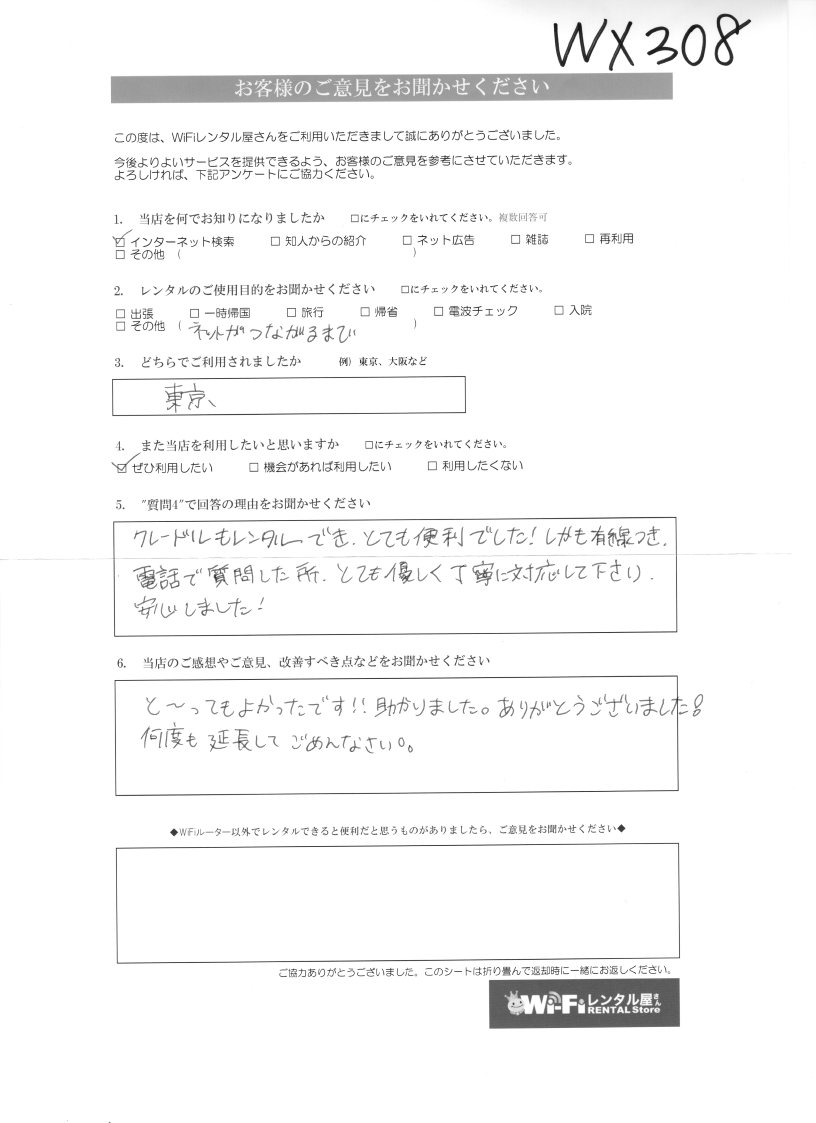 WX308
お客様のご意見をお聞かせください
この度は、WiFiレンタル屋さんをご利用いただきまして誠にありがとうございました。
今後よりよいサービスを提供できるよう、お客様のご意見を参考にさせていただきます。
よろしければ、下記アンケートにご協力ください。
1. 当店を何でお知りになりましたか □にチェックをいれてください。複数回答可
☑ インターネット検索 □ 知人からの紹介 □ ネット広告 □ 雑誌 □ 再利用
□ その他 ( )
2. レンタルのご使用目的をお聞かせください □にチェックをいれてください。
□ 出張 □ 一時帰国 □ 旅行 □ 帰省 □ 電波チェック □ 入院
□ その他 ( ネットがつながるまで )
3. どちらでご利用されましたか 例) 東京、大阪など
東京、
4. また当店を利用したいと思いますか □にチェックをいれてください。
☑ ぜひ利用したい □ 機会があれば利用したい □ 利用したくない
5. "質問4"で回答の理由をお聞かせください
クレードルもレンタルでき、とても便利でした!しかも有線つき、
電話で質問した所、とても優しく丁寧に対応して下さり、
安心しました!
6. 当店のご感想やご意見、改善すべき点などをお聞かせください
と〜ってもよかったです!!助かりました。ありがとうございました!
何度も延長してごめんなさい。
◆WiFiルーター以外でレンタルできると便利だと思うものがありましたら、ご意見をお聞かせください◆
ご協力ありがとうございました。このシートは折り畳んで返却時に一緒にお返しください。
Wi-Fiレンタル屋さん
RENTAL Store